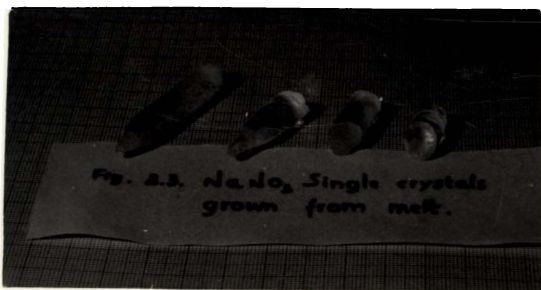 Fig. 2.3. NaNO₂ Single crystals
grown from melt.